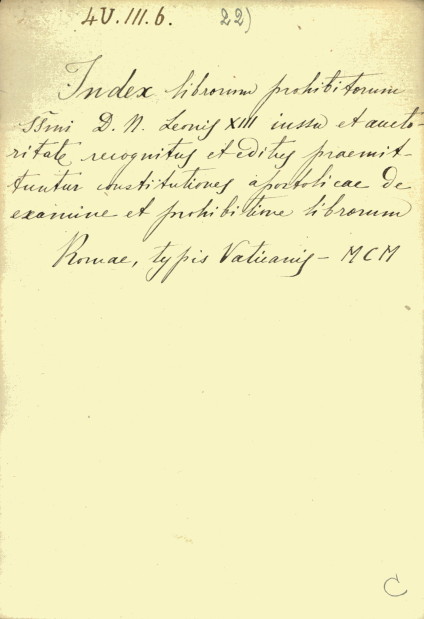 4U.III.6. 22)
Index librorum prohibitorum
SSmi D. N. Leonis XIII iussu et aucto-
ritate recognitus et editus praemit-
tuntur constitutiones apostolicae de
examine et prohibitione librorum
Romae, typis Vaticanis - MCM
C